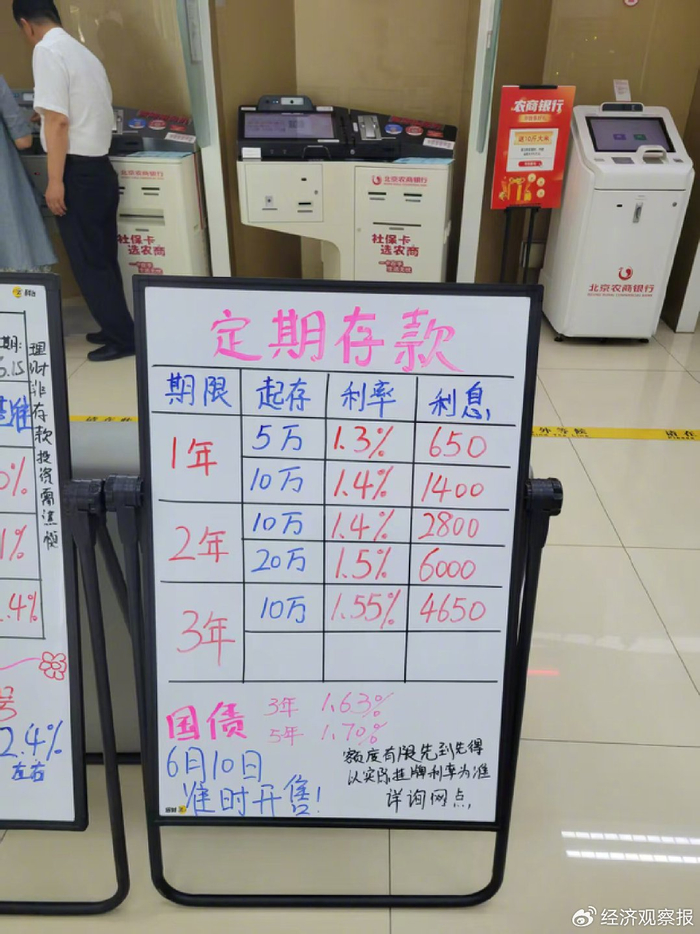 农商银行
送10斤大米
北京农商银行
社保卡
选农商
北京农商银行
社保卡
选农商
北京农商银行
BEIJING RURAL COMMERCIAL BANK
理财非存款投资需谨慎
2.4%
左右
定期存款
期限 起存 利率 利息
1年 5万 1.3% 650
10万 1.4% 1400
2年 10万 1.4% 2800
20万 1.5% 6000
3年 10万 1.55% 4650
国债 3年 1.63%
5年 1.70%
6月10日
准时开售!
额度有限先到先得
以实际挂牌利率为准
详询网点
外等候
请在
经济观察报